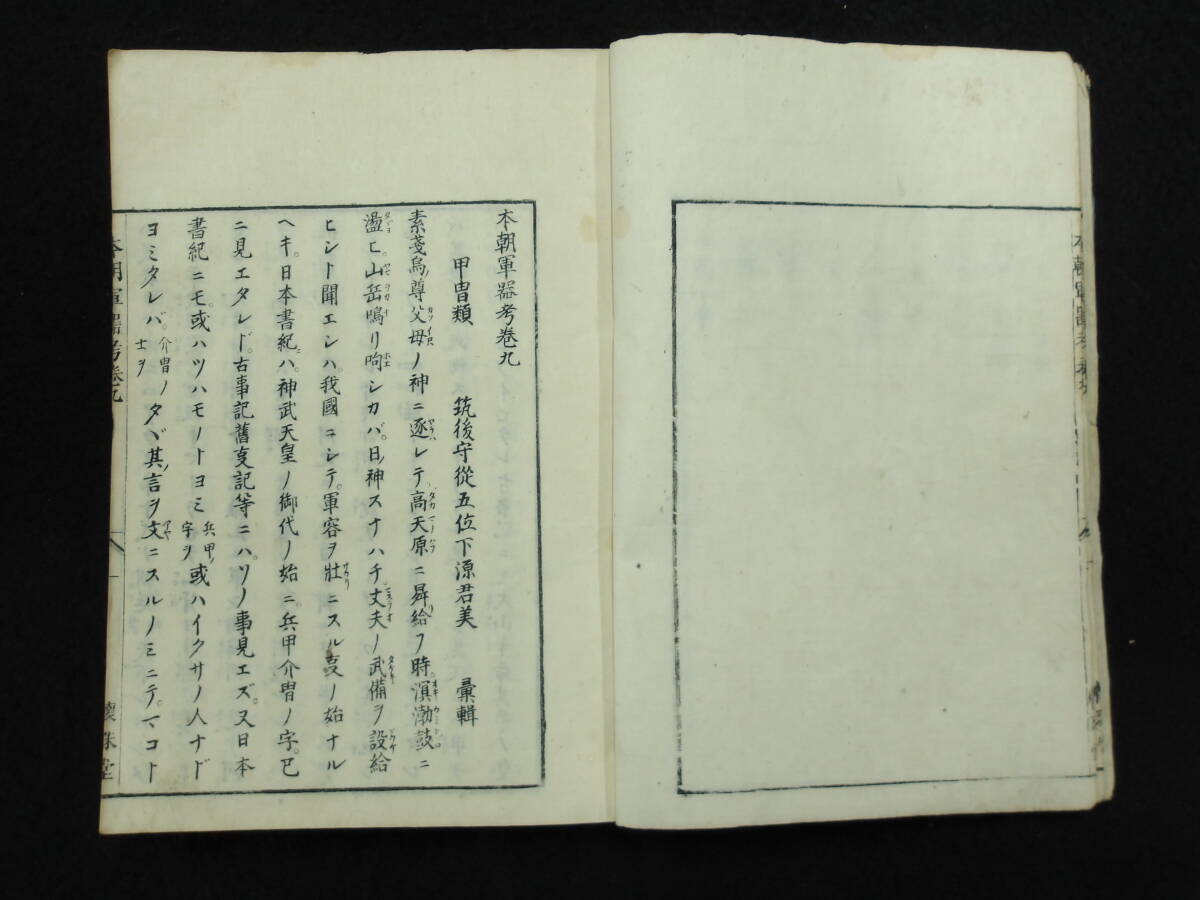 本朝軍器考巻九
甲冑類　筑後守從五位下源君美　彙輯
素戔烏ノ尊父母ノ神ニ逐レテ高天原ニ昇給フ時。溟渤鼓ニ
盪ヒ。山岳鳴リ呴シカバ。日ノ神スナハチ丈夫ノ武備ヲ設給
ヒシト聞エシハ。我國ニシテ。軍容ヲ壯ニスル叓ノ始ナル
ヘキ。日本書紀ニハ。神武天皇ノ御代ノ始ニ。兵甲介冑ノ字。已
ニ見エタレド。古事記舊叓記等ニハ。ソノ事見エズ。又日本
書紀ニモ。或ハツハモノトヨミ兵甲ノ字ヲ或ハイクサノ人ナド
ヨミタレバ。介冑ノ士ヲタヾ其ノ言ヲ文ニスルノミニテ。マコト
本朝軍器考巻九
一
懷珠堂